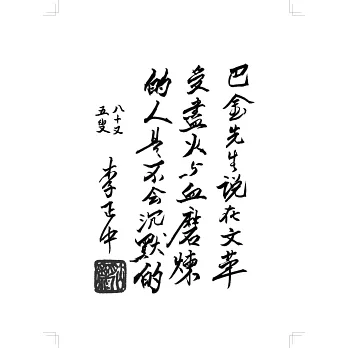 巴金先生说在文革
受尽火与血磨炼
的人是不会沉默的
李正中
八十又
五叟